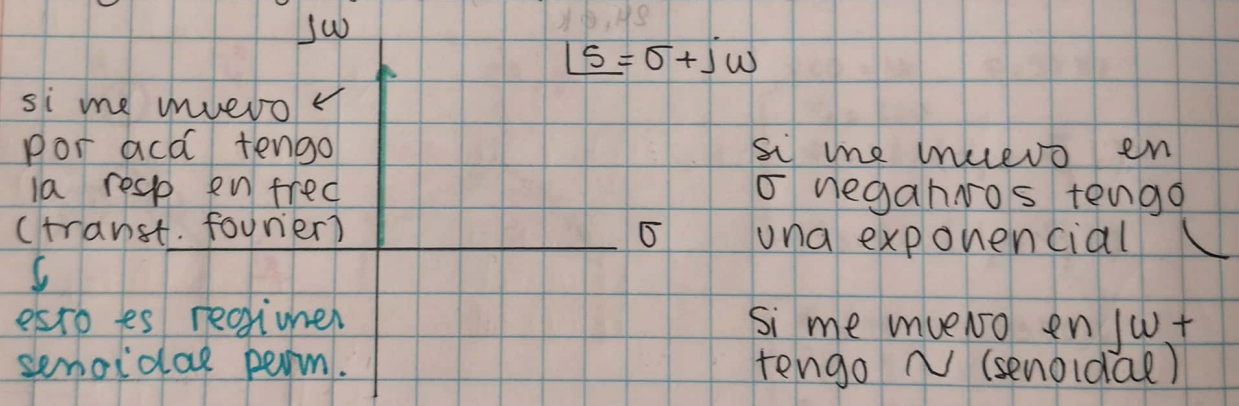 jω
s = σ + jω
si me muevo ←
por acá tengo
la resp en frec
(transf. fourier)
σ
esto es regimen
senoidal perm.
si me muevo en
σ negativos tengo
una exponencial
si me muevo en jω +
tengo ~ (senoidal)